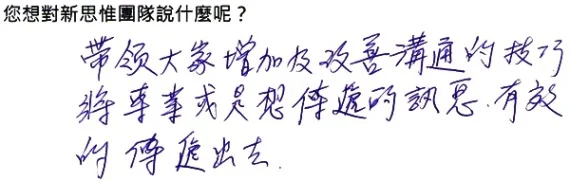 您想對新思惟團隊說什麼呢？
带领大家增加及改善溝通的技巧
將專業或是想傳遞的訊息.有效
的傳遞出去.